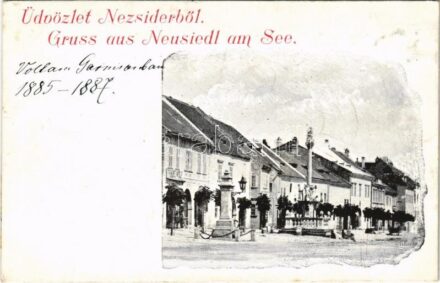 Üdvözlet Nezsiderből.
Gruss aus Neusiedl am See.
Voltam Garnisonban
1885–1887.